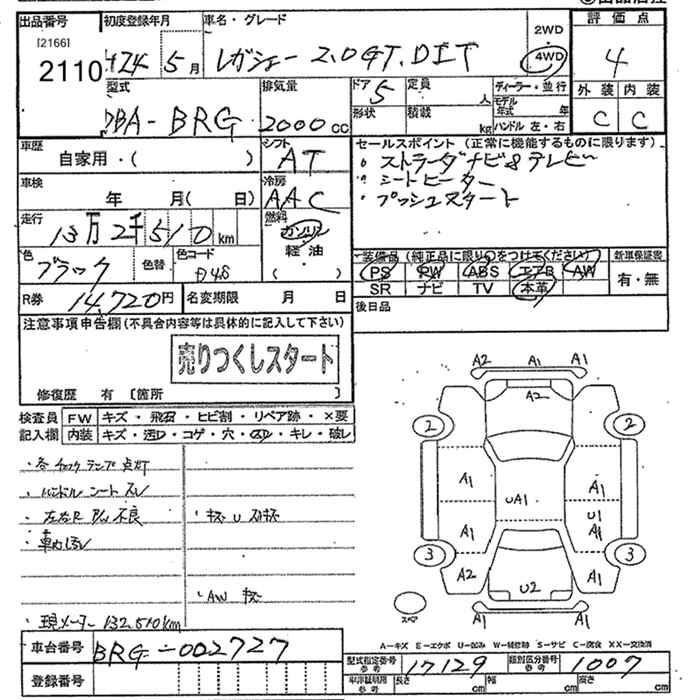 出品番号 初度登録年月 車名・グレード 評価点
[2166] H24 5月 レガシィー 2.0GT.DIT 2WD 4WD 4
2110
型式 排気量 ドア 定員 ディーラー・並行 外装 内装
DBA-BRG 2000cc 5 人 モデル年式 年 C C
形状 積載 kg ハンドル 左・右
車歴 シフト セールスポイント(正常に機能するものに限ります)
自家用・( ) AT ストラーダナビ&テレビ
車検 冷房 シートヒーター
年 月( 日) AAC プッシュスタート
走行 燃料
13万2千510km ガソリン
色 色替 色コード 軽油 装備品(純正品に限り○をつけてください) 新車保証書
ブラック D48 ( ) PS PW ABS エアB AW 有・無
R券 14,720円 名変期限 月 日 SR ナビ TV 本革
注意事項申告欄(不具合内容等は具体的に記入して下さい) 後日品
売りつくしスタート
修復歴 有 [箇所 ]
検査員 FW キズ・飛石・ヒビ割・リペア跡・×要
記入欄 内装 キズ・汚レ・コゲ・穴・スレ・キレ・破レ
・各チェックランプ点灯
・ハンドル シート スレ
・左右R P/W 不良 ・キズ U スリキズ
・車内汚レ
・AW キズ
・現メーター 132,510km
A2 A1 A1
A2
2 2
A1 UA1 A1
A1 U1 A1
3 3
A2 U2 A1
スペア A1
A-キズ E-エクボ U-凹み W-補修跡 S-サビ C-腐食 XX-交換済
車台番号 BRG-002727
型式指定番号 参考 17129 類別区分番号 参考 1007
登録番号 車庫証明用 参考 長さ cm 幅 cm 高さ cm